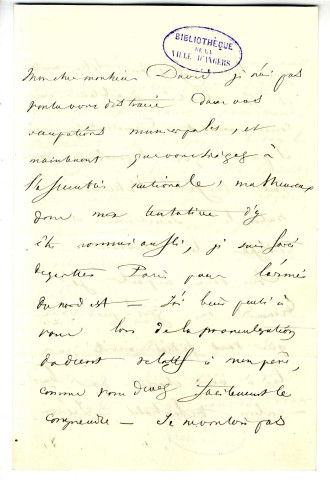 BIBLIOTHÈQUE
DE LA
VILLE D'ANGERS
Mon cher monsieur David, je n'ai pas
voulu vous distraire dans vos
occupations municipales, et
maintenant que vous siégez à
l'assemblée nationale, malheureux
dans ma tentative d'y
être nommé aussi, je suis forcé
de quitter Paris pour l'armée
du nord est — J'ai bien pensé à
vous lors de la promulgation
du décret relatif à mon père,
comme vous devez facilement le
comprendre — Je ne voulois pas